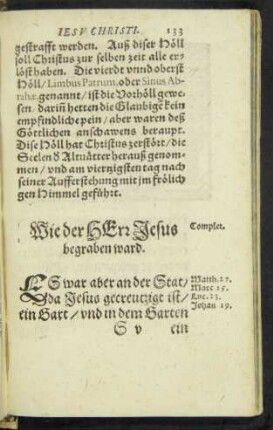 IESV CHRISTI. 133
gestrafft werden. Auß diser Höll
soll Christus zur selben zeit alle er-
löst haben. Die vierdt vnnd oberst
Höll/ Limbus Patrum, oder Sinus Ab-
rahæ genannt/ ist die Vorhöll gewe-
sen. dariñ hetten die Glaubige kein
empfindliche pein/ aber waren deß
Göttlichen anschawens beraupt.
Dise Höll hat Christus zerstört/ die
Seelen d Altuätter herauß genom-
men/ vnd am viertzigsten tag nach
seiner Aufferstehung mit jm frölich
gen Himmel geführt.
Wie der HErr Jesus
begraben ward.
Complet.
ES war aber an der Stat/
da Jesus gecreutzigt ist/
ein Gart/ vnd in dem Garten
Matth. 27.
Marc 15.
Luc. 23.
Johan 19.
S v ein